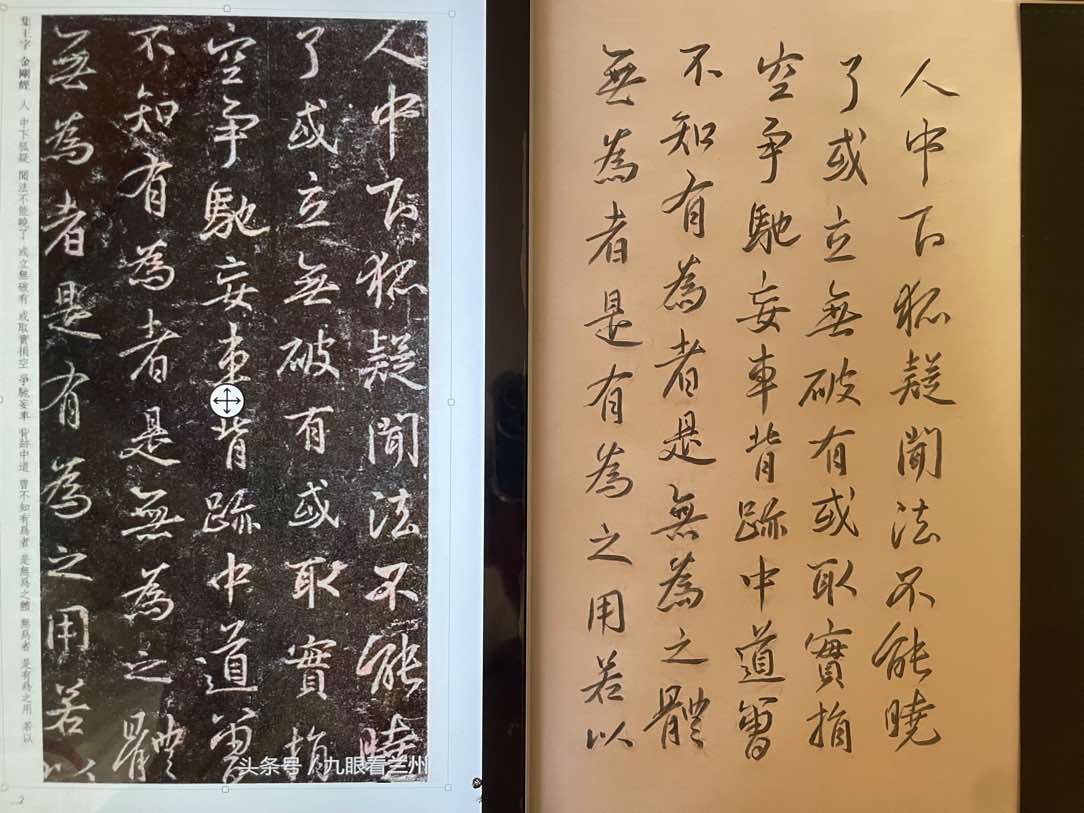 人中下狐疑聞法不能曉
了或立無破有或取實捐
空爭馳妄車背跡中道曾
不知有為者是無為之體
無為者是有為之用若以
集王字 金剛經 人 中下狐疑 聞法不能曉了 或立無破有 或取實捐空 爭馳妄車 背跡中道 曾不知有為者 是無為之體 無為者 是有為之用 若以
头条号 / 九眼看兰州
2
人中下狐疑聞法不能曉
了或立無破有或取實捐
空爭馳妄車背跡中道曾
不知有為者是無為之體
無為者是有為之用若以